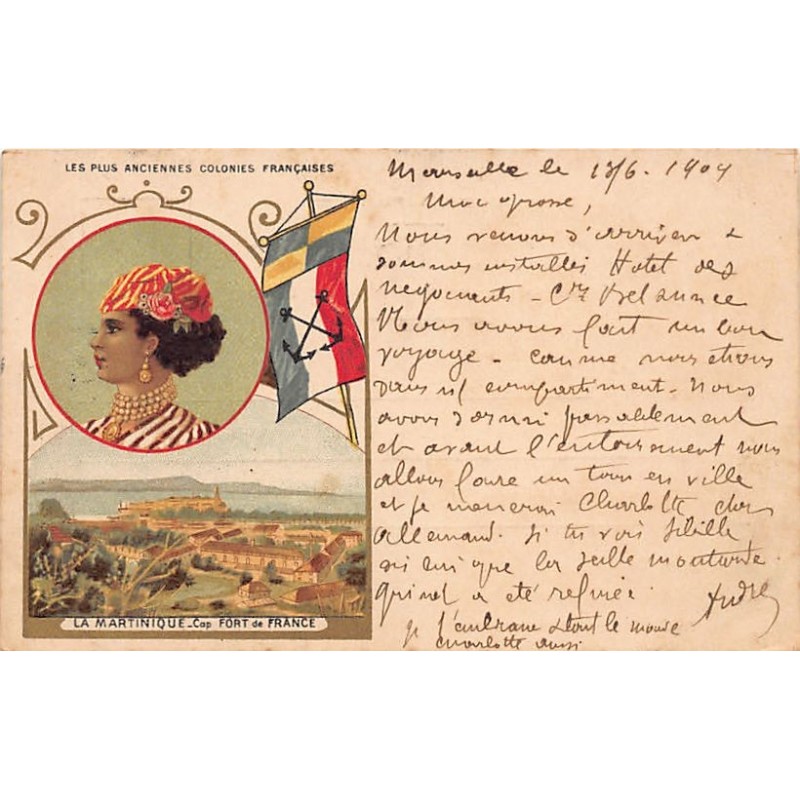 LES PLUS ANCIENNES COLONIES FRANÇAISES
LA MARTINIQUE_Cap FORT de FRANCE
Marseille le 13/6. 1904
grosse,
Nous venons d'arriver &
sommes installés Hotel des
negociants -
Nous avons fait un bon
voyage - comme nous étions
dans compartiment. Nous
avons dormi passablement
et avant l'enterrement nous
allons faire un tour en ville
et je menerai Charlotte chez
Allemand. Si tu vois Sibille
dis lui que la seille moutarde
qui a été refusée. André
je t'embrasse & tout le monde
Charlotte aussi